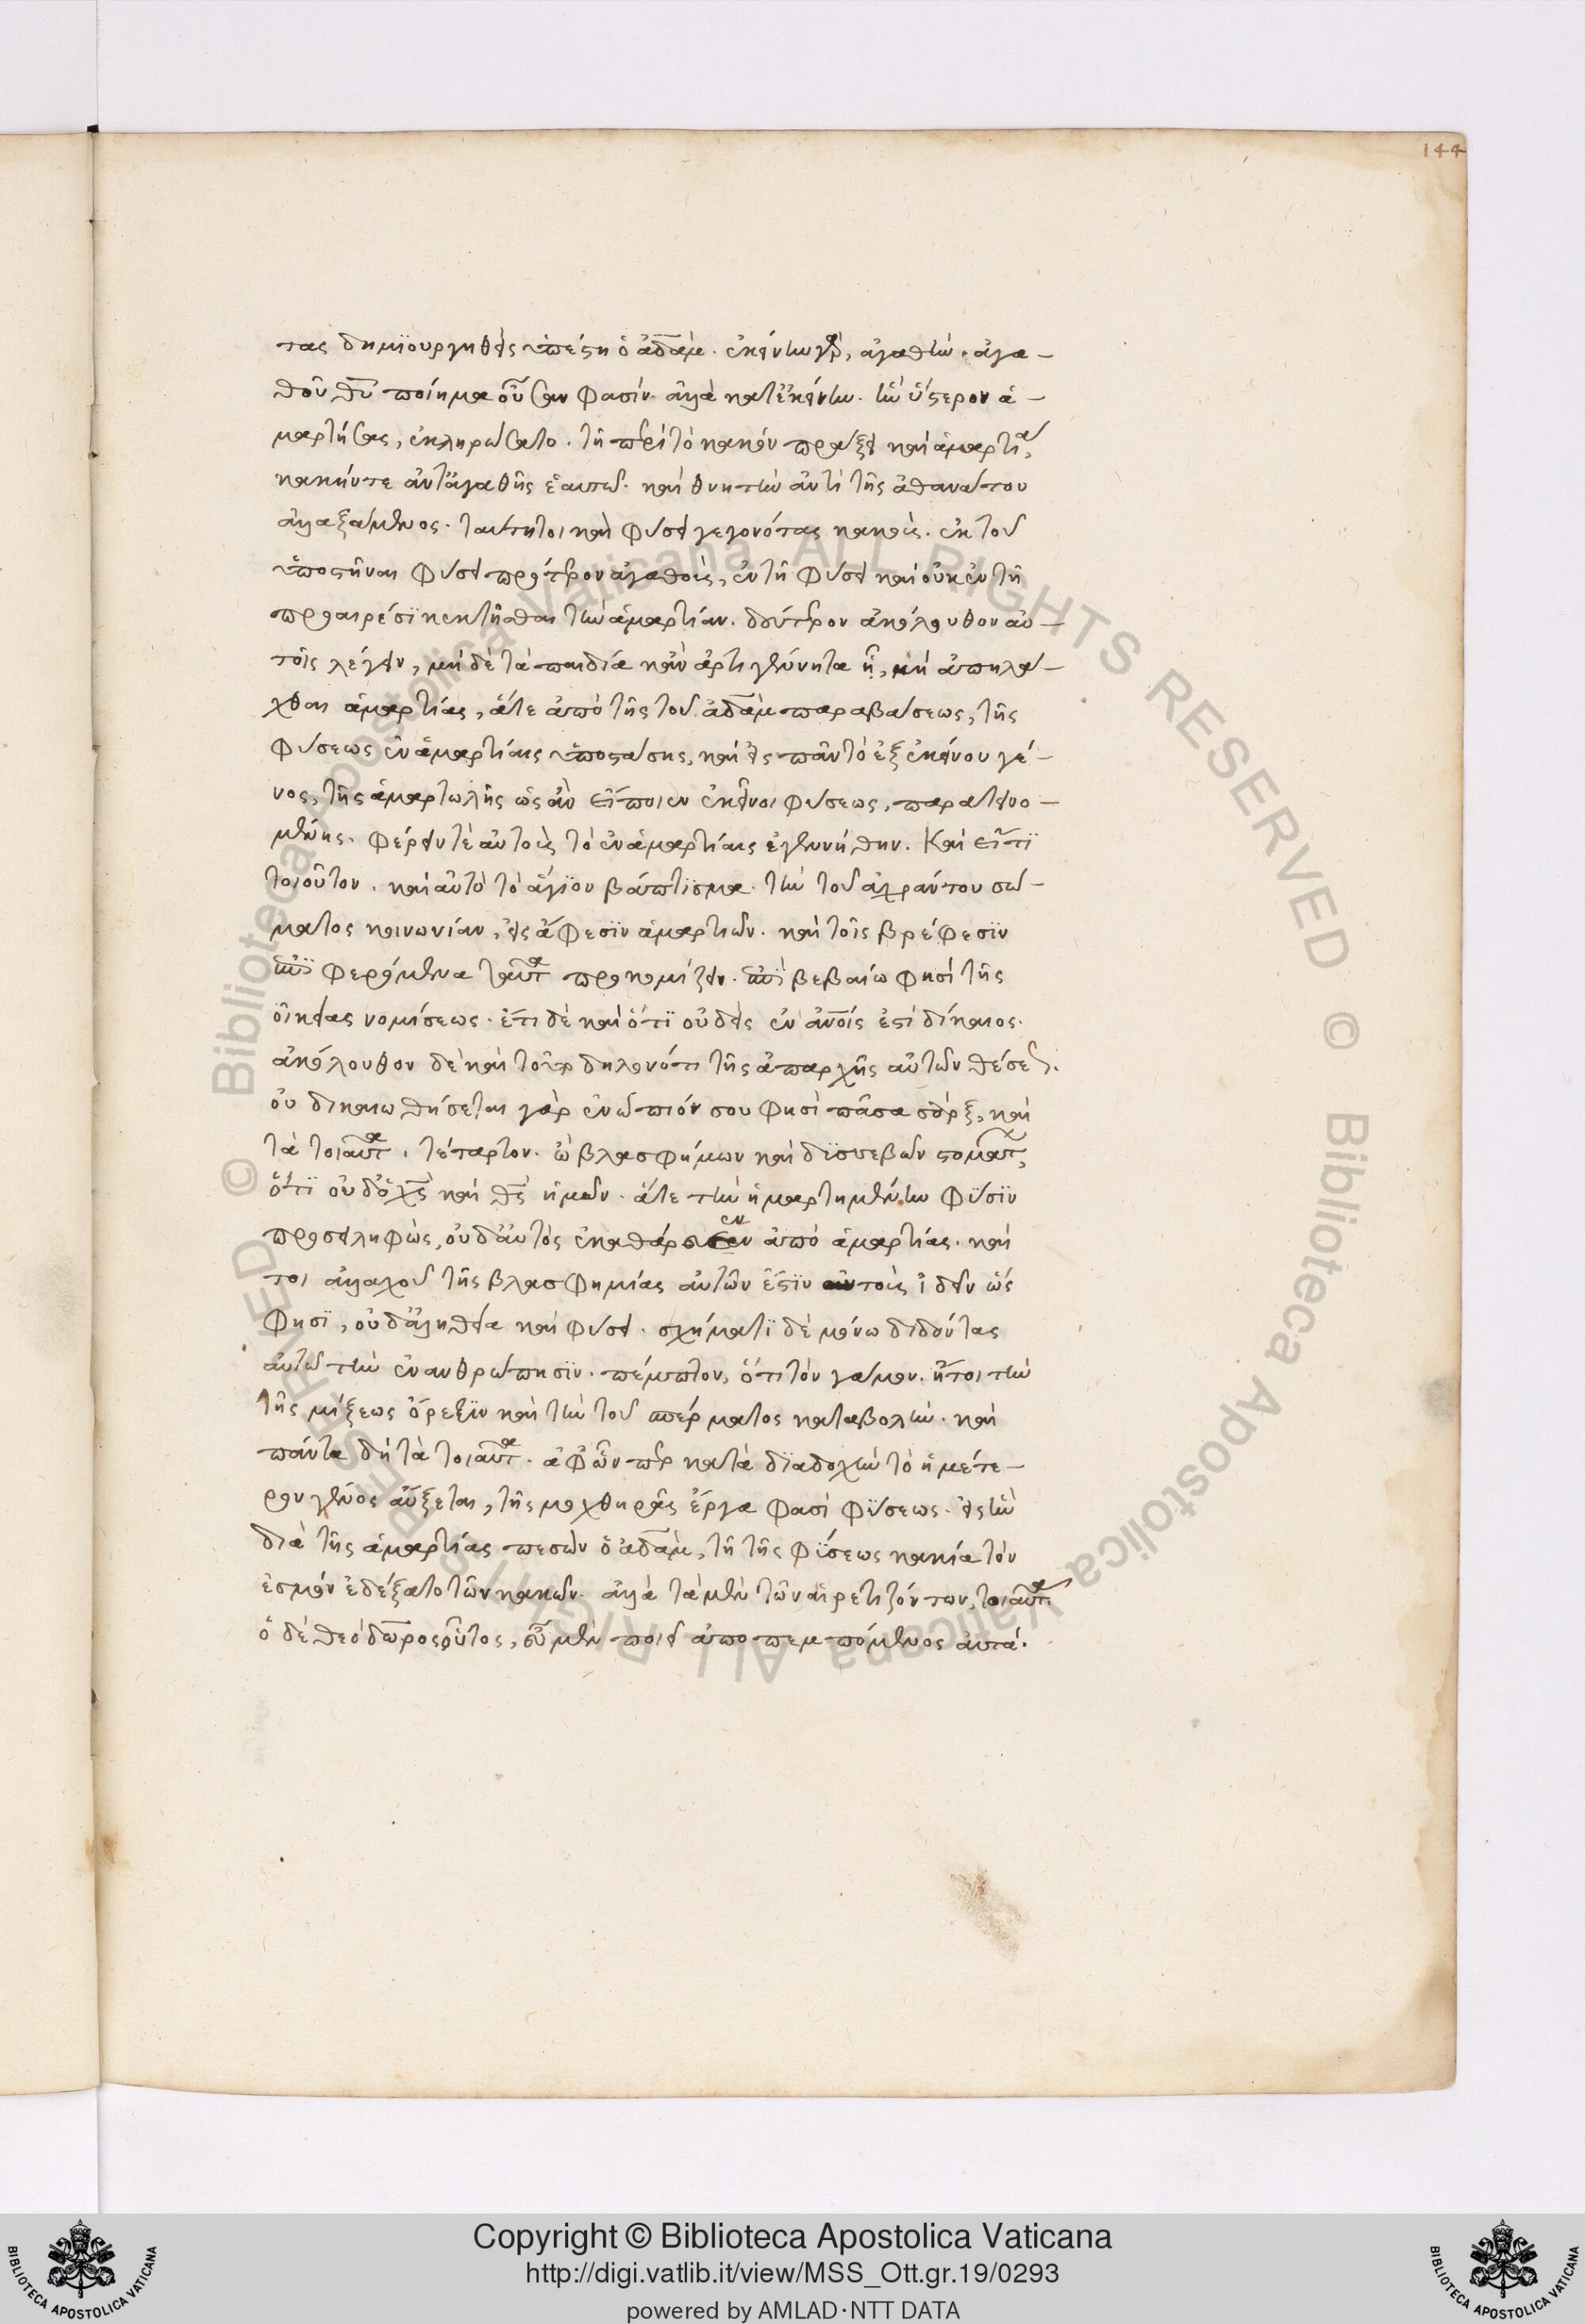 144
τας δημϊουργηθεὶς ὑπέστη ὁ ἀδὰμ. ἐκείνην γὰρ, ἀγαθήν. ἀγα-
θοῦ θῦ ποίημα οὖσαν φασίν. ἀλλὰ κατ' ἐκείνην. ἣν ὕστερον ἁ-
μαρτήσας, ἐκληρώσατο. τῆ περὶ τὸ κακόν πράξει καὶ ἁμαρτία,
κακήν τε ἀντ' ἀγαθῆς ἑαυτῶ. καὶ θνητὴν ἀντὶ τῆς ἀθανάτου
ἀλλαξάμενος. ταύτητοι καὶ φύσει γεγονότας κακοὺς. ἐκ τοῦ
ὑποστῆναι φύσει πρότερον ἀγαθοὺς, ἐν τῆ φύσει καὶ οὐκ ἐν τῆ
προαιρέσϊ κεκτῆσθαι τὴν ἁμαρτίαν. δεύτερον ἀκόλουθον αὐ-
τοῖς λέγειν, μὴ δὲ τὰ παιδία κἂν ἀρτιγέννητα ᾖ, μὴ ἀπηλλά-
χθαι ἁμαρτίας, ἅτε ἀπὸ τῆς τοῦ ἀδὰμ παραβάσεως, τῆς
φύσεως ἐν ἁμαρτίαις ὑποστάσης, καὶ εἰς πᾶν τὸ ἐξ ἐκείνου γέ-
νος, τῆς ἁμαρτωλῆς ὡς ἂν εἴποιεν ἐκεῖνοι φύσεως, παρατεινο-
μένης. φέρειν τὲ αὐτοὺς τὸ ἐν ἁμαρτίαις ἐγεννήθην. Καὶ εἴ τϊ
τοιοῦτον. καὶ αὐτὸ τὸ ἅγϊον βάπτϊσμα. τὴν τοῦ ἀχράντου σώ-
ματος κοινωνίαν, εἰς ἄφεσϊν ἁμαρτιῶν. καὶ τοῖς βρέφεσϊν
ἐπϊφερόμενα ταῦτα προκομίζειν. ἐπὶ βεβαίω φησί τῆς
οἰκείας νομίσεως. ἔτι δὲ καὶ ὅτϊ οὐδεὶς ἐν ἀνοῖς ἐστὶ δίκαιος.
ἀκόλουθον δὲ καὶ τοῦτο δηλονότι τῆς ἀπαρχῆς αὐτῶν θέσεως.
οὐ δικαιωθήσεται γὰρ ἐνώπιόν σου φησὶ πᾶσα σὰρξ, καὶ
τὰ τοιαῦτα. τέταρτον. ὢ βλασφήμων καὶ δϊσσεβῶν στομάτων,
ὅτϊ οὐδ' ὁ χς καὶ θς ἡμῶν. ἅτε τὴν ἡμαρτημένην φϋσϊν
προσειληφὼς, οὐδ' αὐτὸς ἐκαθάρευεν ἀπὸ ἁμαρτίας. καί
τοι ἀλλαχοῦ τῆς βλασφημίας αὐτῶν ἔστϊν αὐτοὺς ἰδεῖν ὡς
φησϊ, οὐδ' ἀληθεία καὶ φύσει. σχήματϊ δὲ μόνω διδόντας
αὐτῶ τὴν ἐνανθρώπησϊν. πέμπτον, ὅτι τὸν γάμον. ἤτοι τὴν
τῆς μίξεως ὄρεξϊν καὶ τὴν τοῦ σπέρματος καταβολὴν. καὶ
πάντα δὴ τὰ τοιαῦτα. ἀφ' ὧν περ κατὰ δϊαδοχὴν τὸ ἡμέτε-
ρον γένος αὔξεται, τῆς μοχθηρᾶς ἔργα φασὶ φϋσεως. εἰς ἣν
διὰ τῆς ἁμαρτίας πεσὼν ὁ ἀδὰμ, τῆ τῆς φϊσεως κακία τὸν
ἑσμὸν ἐδέξατο τῶν κακῶν. ἀλλὰ τὰ μὲν τῶν αἱρετιζόντων, τοιαῦτα.
ὁ δὲ θεόδωρος οὗτος, εὖ μὲν ποιεῖ ἀποπεμπόμενος αὐτά.
Copyright © Biblioteca Apostolica Vaticana
http://digi.vatlib.it/view/MSS_Ott.gr.19/0293
powered by AMLAD·NTT DATA
BIBLIOTECA APOSTOLICA VATICANA
BIBLIOTECA APOSTOLICA VATICANA
© Biblioteca Apostolica Vaticana ALL RIGHTS RESERVED © Biblioteca Apostolica Vaticana ALL RIGHTS RESERVED